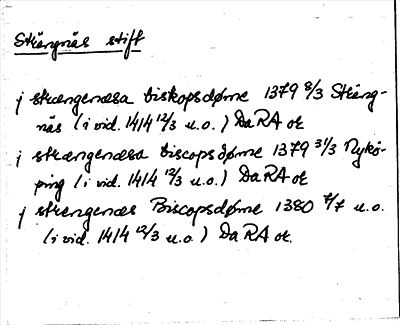 Strängnäs stift
j strængenæsa biskopsdøme 1379 8/3 Sträng-
näs (i vid. 1414 12/3 u.o.) DaRA or
j strængenæsa biscopsdøme 1379 31/3 Nykö-
ping (i vid. 1414 12/3 u.o.) DaRA or
j strengenæs Biscopsdøme 1380 7/7 u.o.
(i vid. 1414 12/3 u.o.) DaRA or.